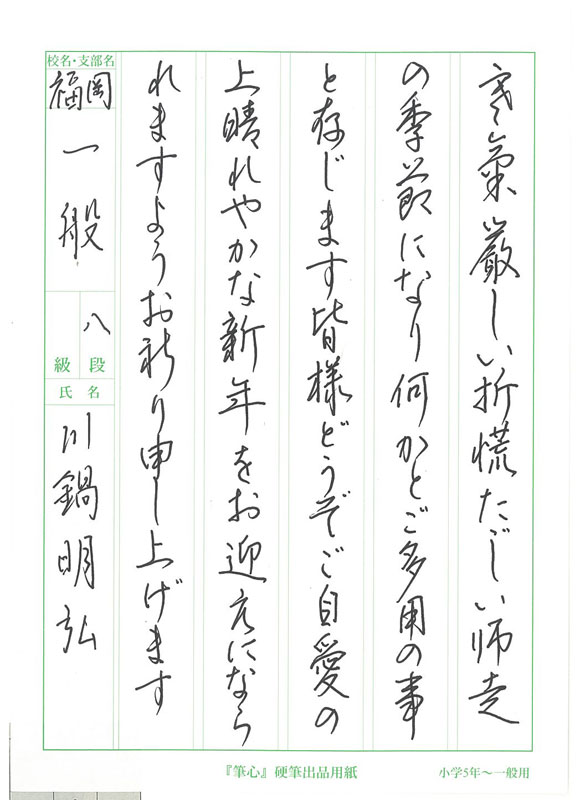 寒氣厳しい折慌たゞしい師走
の季節になり何かとご多用の事
と存じます皆様どうぞご自愛の
上晴れやかな新年をお迎えになら
れますようお祈り申し上げます
校名・支部名
福岡
一般
八段
級
氏名
川鍋明弘
『筆心』硬筆出品用紙
小学5年～一般用